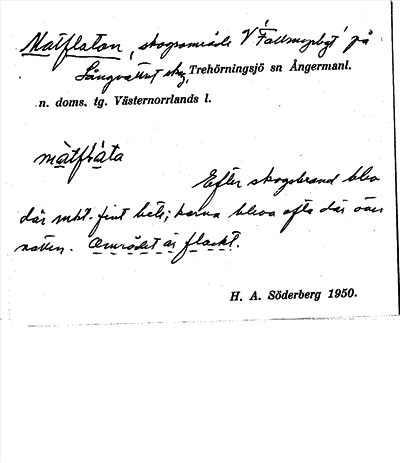 Matflaton, skogsområde V 'Fallmyrbgt' på
Långvattnet skg, Trehörningsjö sn Ångermanl.
n. doms. tg. Västernorrlands l.
màtflàta
Efter skogsbrand blev
där mkt. fint bete; korna blevo ofta där över
natten. Området är flackt.
H. A. Söderberg 1950.